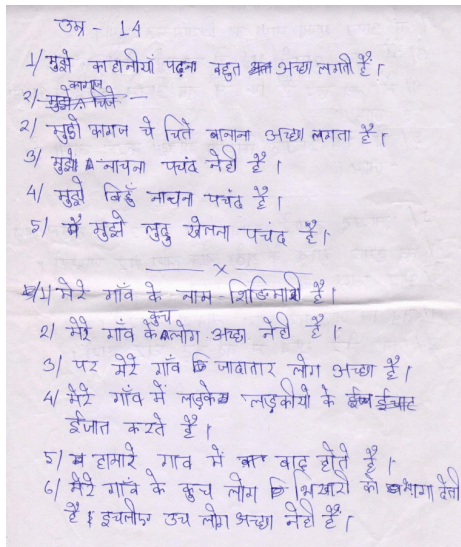 उम्र - 14
1/ मुझे काहानीयाँ पढ़ना बहुत अच्छा लगती हैं।
कागज
2/ मुझे चिजे
2/ मुझे कागज चे चिते बानाना अच्छा लगता है।
3/ मुझे नाचना पचंद नेही है।
4/ मुझे बिहुँ नाचना पचंद है।
5/ मुझे लुदु खेलना पचंद है।
x
1/ मेरे गाँव के नाम शिङिमारी है।
कुच
2/ मेरे गाँव के लोग अच्छा नेही है।
3/ पर मेरे गाँव जादातार लोग अच्छा है।
4/ मेरे गाँव में लड़के लड़कीयो के ईचाट
ईजात करते है।
5/ हामारे गाव में बाद होते है।
6/ मेरे गाँव के कुच लोग भिखारी को भागा देती
है। इचलीए उच लोग अच्छा नेही है।